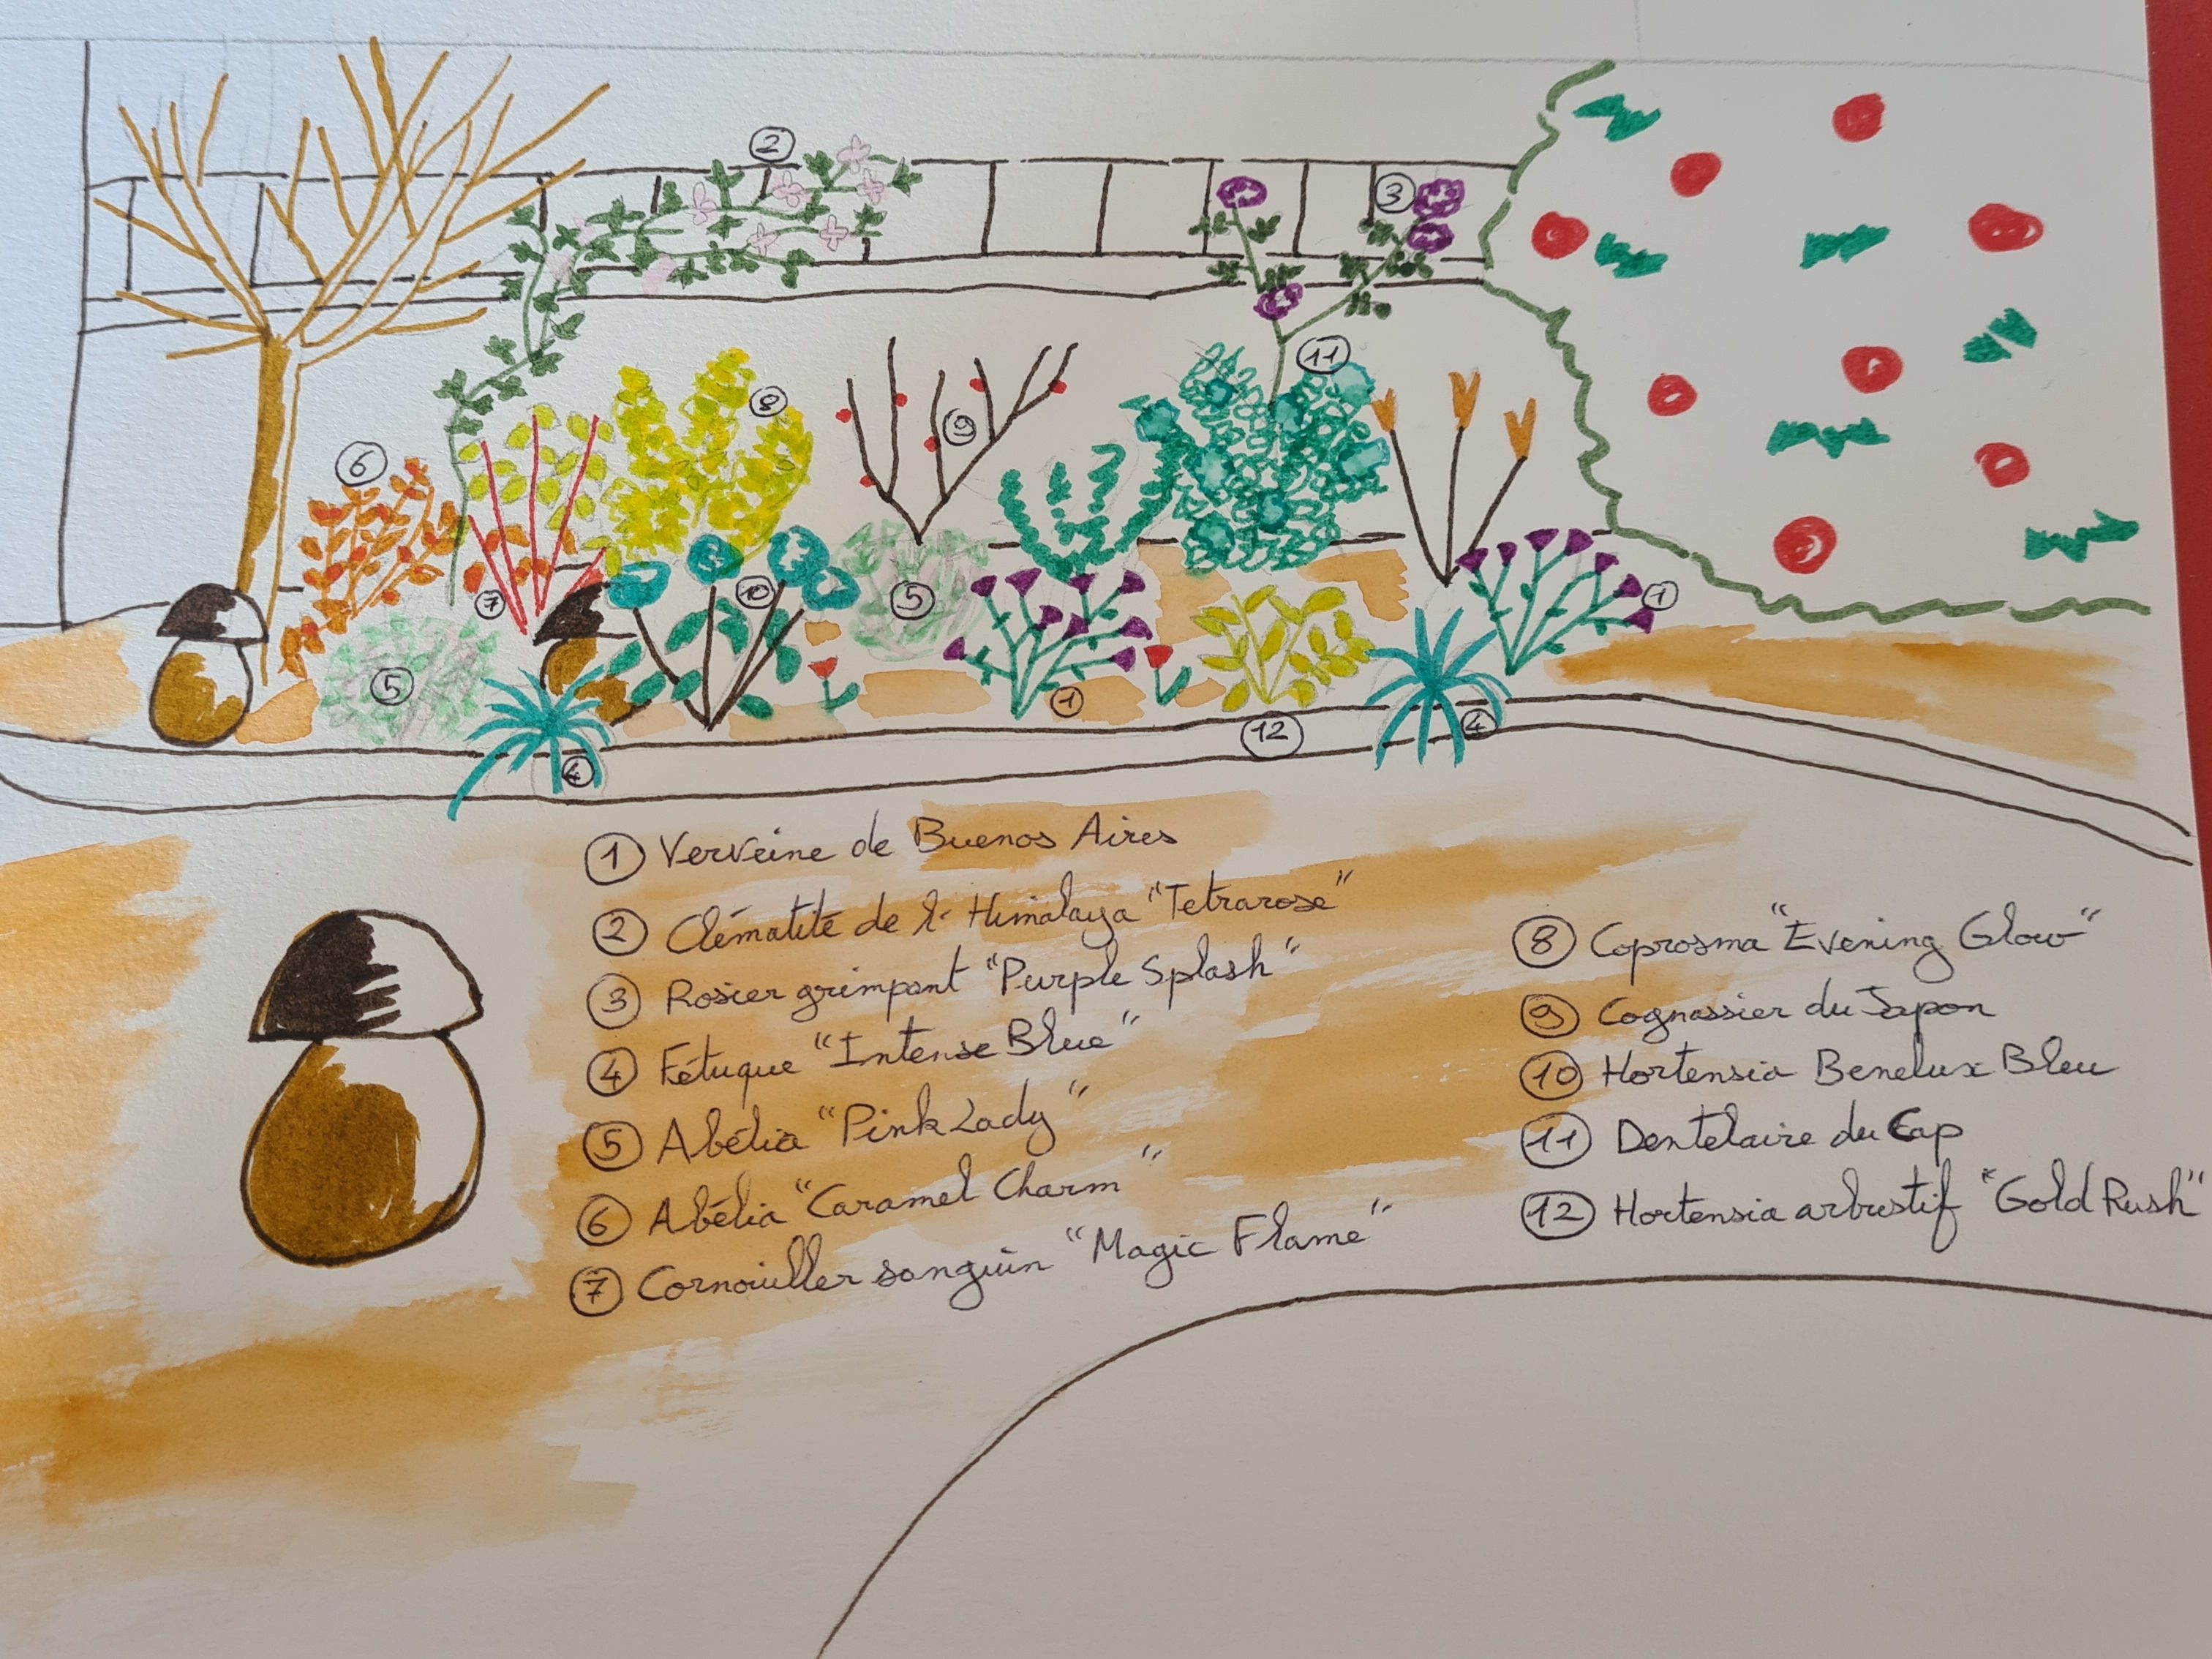 2
3
11
8
9
6
7
10
5
1
5
1
12
4
4
1 Verveine de Buenos Aires
2 Clématite de l'Himalaya "Tetrarose"
3 Rosier grimpant "Purple Splash"
4 Fétuque "Intense Blue"
5 Abélia "Pink Lady"
6 Abélia "Caramel Charm"
7 Cornouiller sanguin "Magic Flame"
8 Coprosma "Evening Glow"
9 Cognassier du Japon
10 Hortensia Benelux Bleu
11 Dentelaire du Cap
12 Hortensia arbustif "Gold Rush"